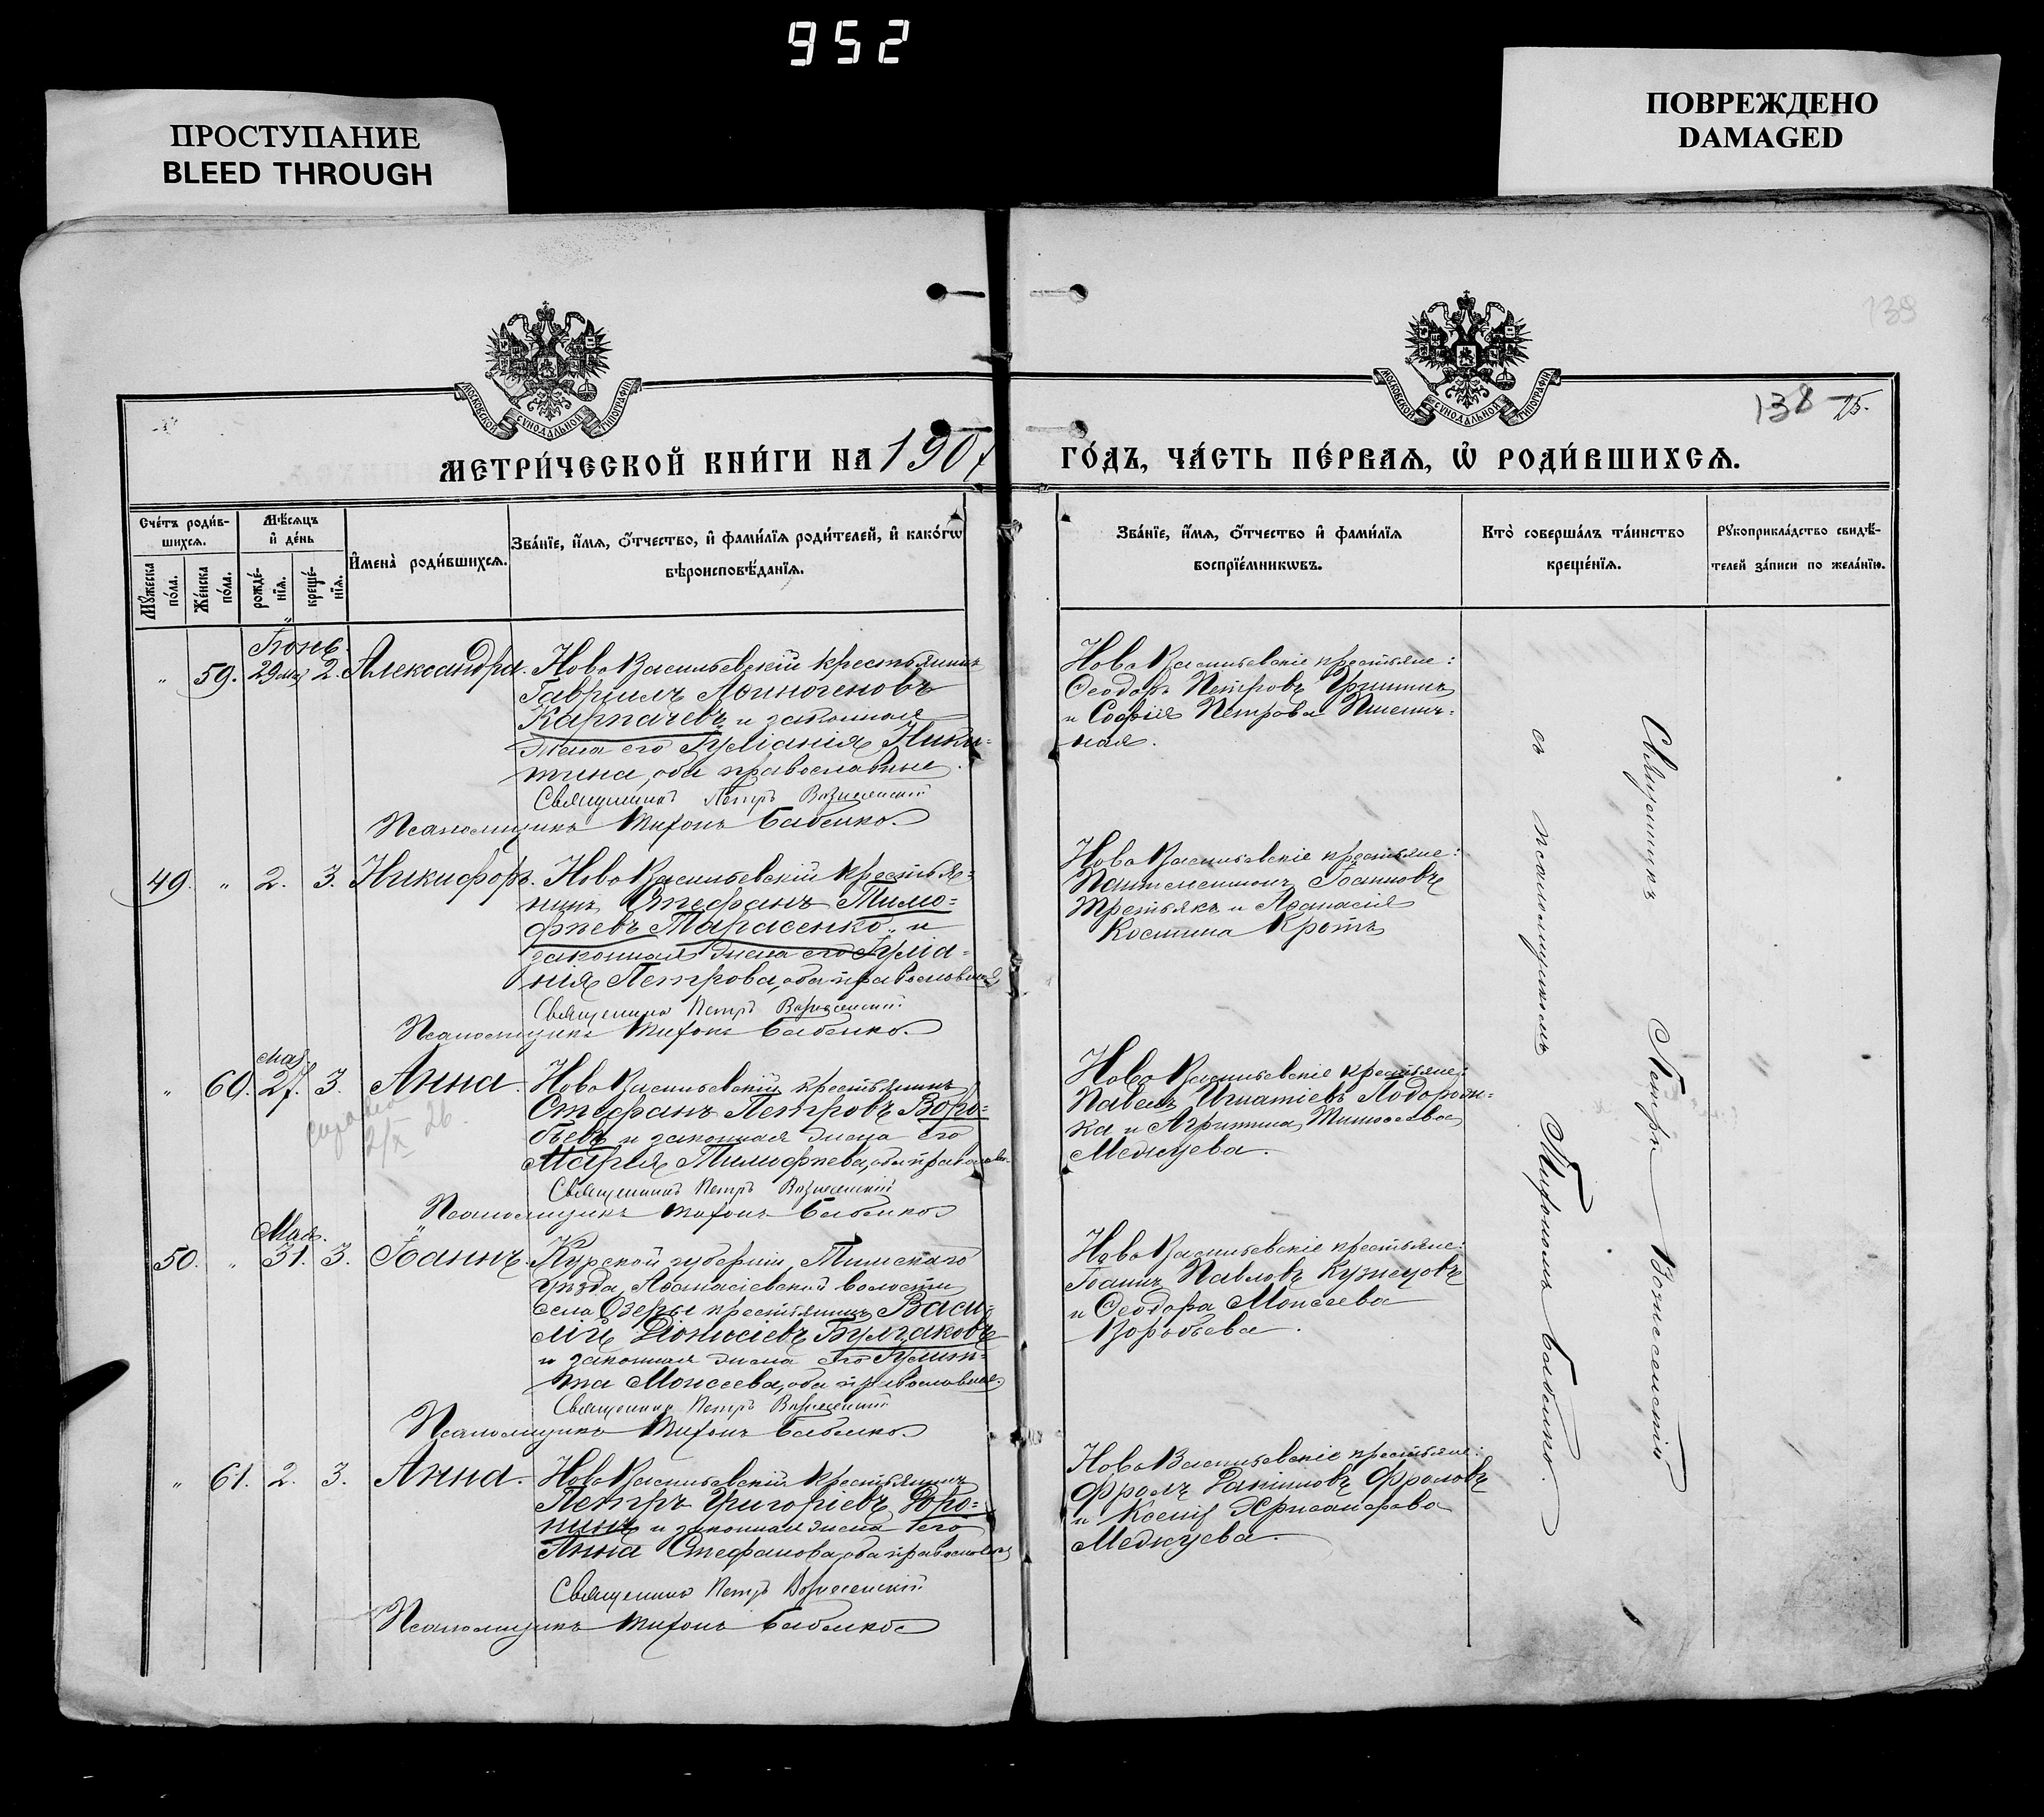 952
ПРОСТУПАНИЕ
BLEED THROUGH
ПОВРЕЖДЕНО
DAMAGED
139
138 75.
МОСКОВСКОЙ СѴНОДАЛЬНОЙ ТИПОГРАФІИ
МОСКОВСКОЙ СѴНОДАЛЬНОЙ ТИПОГРАФІИ
МЕТРИ́ЧЕСКОЙ КНИ́ГИ НА 190
ГО́ДЪ, ЧА́СТЬ ПЕ́РВАѦ, Ѡ҆ РОДИ́ВШИХСѦ.
Сче́тъ роди́в-
шихсѧ.
Мꙋ́жеска по́ла.
Же́нска по́ла.
Мѣ́сѧцъ и҆ де́нь
рожде́-нїѧ.
креще́-нїѧ.
И҆мена̀ роди́вшихсѧ.
Зва́нїе, и҆́мѧ, ѻ҆́тчество, и҆ фами́лїѧ роди́телей, и҆ како́гѡ
вѣроисповѣ́данїѧ.
Зва́нїе, и҆́мѧ, ѻ҆́тчество и҆ фами́лїѧ
воспрїе́мникѡвъ.
Кто̀ соверша́лъ та́инство
креще́нїѧ.
Рꙋкоприкла́дство свидѣ́-
телей за́писи по жела́нїю.
Іюнь.
" 59. 29 мая 2. Александра. Ново Васильевскій крестьянинъ
Гавріилъ Аѳиногеновъ
Карпачевъ и законная
жена его Іуліанія Ники-
тина, оба православные.
Священникъ Петръ Вознесенскій
Псаломщикъ Тихонъ Бабенко.
Ново Васильевскіе крестьяне:
Ѳеодоръ Петровъ
и Софія Петрова Пшенич-
ная.
49. " 2. 3. Никифоръ. Ново Васильевскій крестья-
нинъ Стефанъ Тимо-
фѣевъ Тарасенко и
законная жена его Іуліа-
нія Петрова, оба православные
Священникъ Петръ Вознесенскій
Псаломщикъ Тихонъ Бабенко.
Ново Васильевскіе крестьяне:
Пантелеимонъ Іоанновъ
Третьякъ и Аѳанасія
Костина Кротъ
Мая.
" 60. 27. 3. Анна. Ново Васильевскій крестьянинъ
Стефанъ Петровъ Воро-
бьевъ и законная жена его
Марія Тимофѣева, оба православн.
Священникъ Петръ Вознесенскій
Псаломщикъ Тихонъ Бабенко
2/X 26.
Ново Васильевскіе крестьяне:
Павелъ Игнатіевъ
и Агриппина Тимоѳеева
Мая.
50. " 31. 3. Іоаннъ. Курской губерніи, Тимскаго
уѣзда, Аѳанасіевской волости
села Озеры крестьянинъ Васи-
лій Діонисіевъ Булгаковъ
и законная жена его Іулит-
та Моисеева, оба православные.
Священникъ Петръ Вознесенскій
Псаломщикъ Тихонъ Бабенко.
Ново Васильевскіе крестьяне:
Іоаннъ Павловъ Кузнецовъ
и Ѳеодора Моисеева
Воробьева.
" 61. 2. 3. Анна. Ново Васильевскій крестьянинъ
Петръ Григоріевъ Доро-
нинъ и законная жена его
Анна Стефанова, оба православные
Священникъ Петръ Вознесенскій
Псаломщикъ Тихонъ Бабенко
Ново Васильевскіе крестьяне:
Фролъ Фроловъ
и Ксенія Хрисанфова
Священникъ Петръ Вознесенскій
съ псаломщикомъ Тихономъ Бабенко.